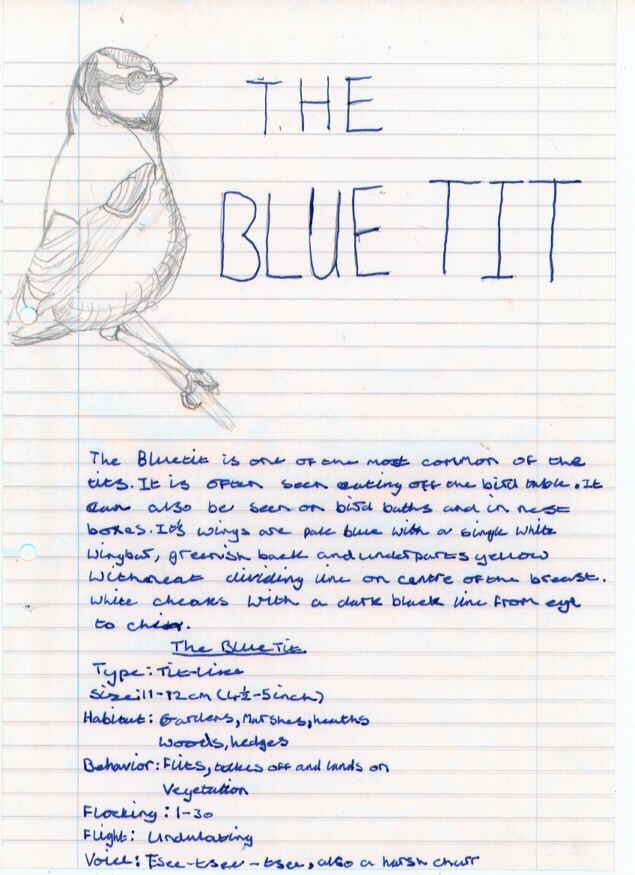 THE
BLUE TIT
The Bluetit is one of the most common of the
tits. It is often seen eating off the bird table. It
can also be seen on bird baths and in nest
boxes. It's wings are pale blue with a single white
wingbar, greenish back and underparts yellow
with neat dividing line on centre of the breast.
White cheaks with a dark black line from eye
to chin.
The Blue Tit
Type: Tit-like
Size: 11-12cm (4½-5inch)
Habitat: Gardens, Marshes, heaths
woods, hedges
Behavior: Flits, takes off and lands on
Vegetation
Flocking: 1-30
Flight: Undulating
Voice: Tsee-tsee-tsee, also a harsh churr